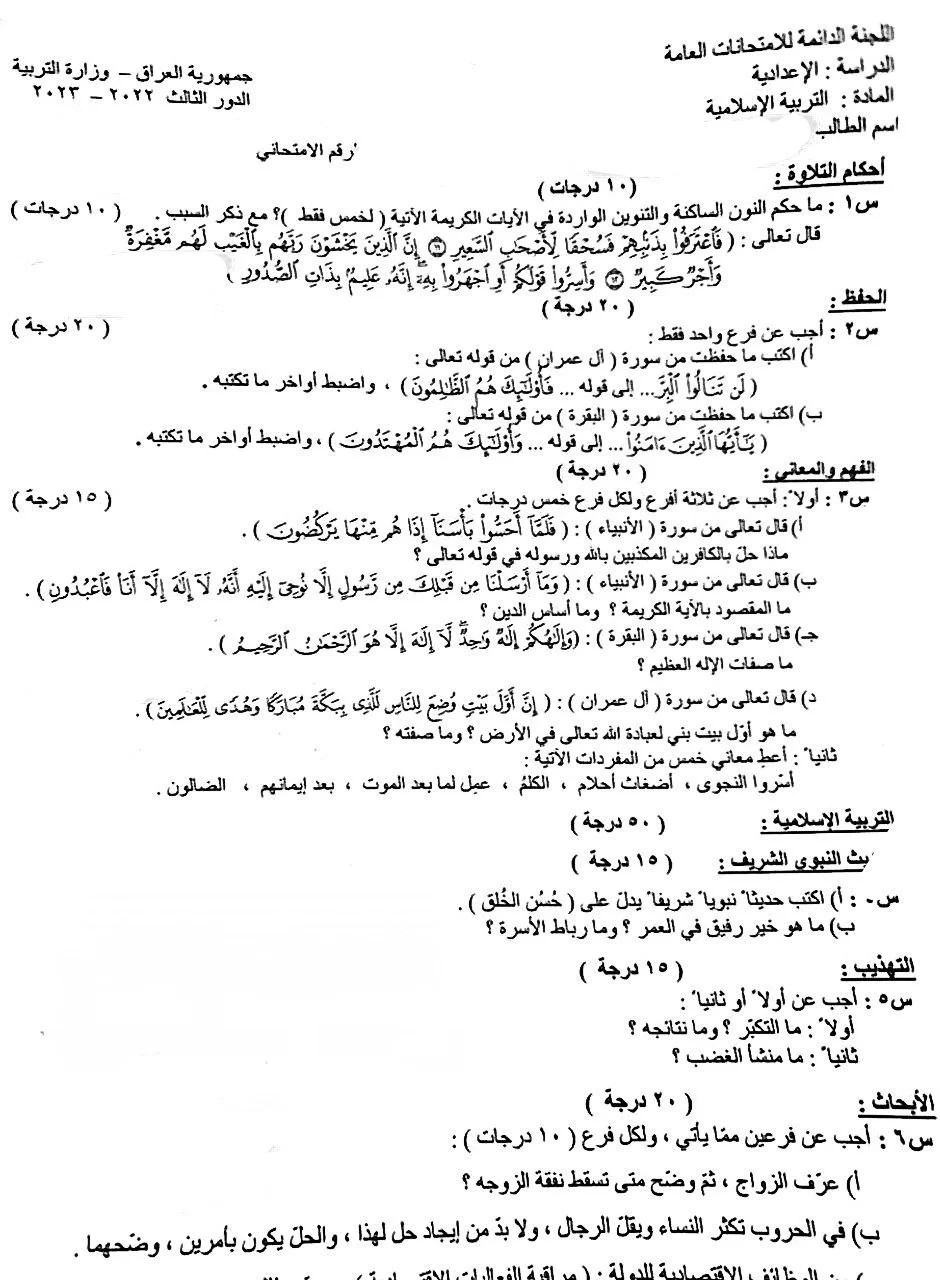 اللجنة الدائمة للامتحانات العامة
الدراسة : الإعدادية
المادة : التربية الإسلامية
اسم الطالب
جمهورية العراق – وزارة التربية
الدور الثالث ٢٠٢٢ – ٢٠٢٣
رقم الامتحاني
أحكام التلاوة : ( ١٠ درجات )
س١ : ما حكم النون الساكنة والتنوين الواردة في الآيات الكريمة الآتية ( لخمس فقط )؟ مع ذكر السبب . ( ١٠ درجات )
قال تعالى : ( فَٱعْتَرَفُوا۟ بِذَنۢبِهِمْ فَسُحْقًا لِّأَصْحَٰبِ ٱلسَّعِيرِ ١١ إِنَّ ٱلَّذِينَ يَخْشَوْنَ رَبَّهُم بِٱلْغَيْبِ لَهُم مَّغْفِرَةٌ
وَأَجْرٌ كَبِيرٌ ١٢ وَأَسِرُّوا۟ قَوْلَكُمْ أَوِ ٱجْهَرُوا۟ بِهِۦٓ ۖ إِنَّهُۥ عَلِيمٌۢ بِذَاتِ ٱلصُّدُورِ )
الحفظ : ( ٢٠ درجة )
س٢ : أجب عن فرع واحد فقط : ( ٢٠ درجة )
أ) اكتب ما حفظت من سورة ( آل عمران ) من قوله تعالى :
( لَن تَنَالُوا۟ ٱلْبِرَّ... إلى قوله ... فَأُو۟لَٰٓئِكَ هُمُ ٱلظَّٰلِمُونَ ) ، واضبط أواخر ما تكتبه .
ب) اكتب ما حفظت من سورة ( البقرة ) من قوله تعالى :
( يَٰٓأَيُّهَا ٱلَّذِينَ ءَامَنُوا۟ ... إلى قوله ... وَأُو۟لَٰٓئِكَ هُمُ ٱلْمُهْتَدُونَ ) ، واضبط أواخر ما تكتبه .
الفهم والمعاني : ( ٢٠ درجة )
س٣ : أولاً : أجب عن ثلاثة أفرع ولكل فرع خمس درجات . ( ١٥ درجة )
أ) قال تعالى من سورة ( الأنبياء ) : ( فَلَمَّآ أَحَسُّوا۟ بَأْسَنَآ إِذَا هُم مِّنْهَا يَرْكُضُونَ ) .
ماذا حلّ بالكافرين المكذبين بالله ورسوله في قوله تعالى ؟
ب) قال تعالى من سورة ( الأنبياء ) : ( وَمَآ أَرْسَلْنَا مِن قَبْلِكَ مِن رَّسُولٍ إِلَّا نُوحِىٓ إِلَيْهِ أَنَّهُۥ لَآ إِلَٰهَ إِلَّآ أَنَا۠ فَٱعْبُدُونِ ) .
ما المقصود بالآية الكريمة ؟ وما أساس الدين ؟
جـ) قال تعالى من سورة ( البقرة ) : ( وَإِلَٰهُكُمْ إِلَٰهٌ وَٰحِدٌ ۖ لَّآ إِلَٰهَ إِلَّا هُوَ ٱلرَّحْمَٰنُ ٱلرَّحِيمُ ) .
ما صفات الإله العظيم ؟
د) قال تعالى من سورة ( آل عمران ) : ( إِنَّ أَوَّلَ بَيْتٍ وُضِعَ لِلنَّاسِ لَلَّذِى بِبَكَّةَ مُبَارَكًا وَهُدًى لِّلْعَٰلَمِينَ ) .
ما هو أوّل بيت بني لعبادة الله تعالى في الأرض ؟ وما صفته ؟
ثانياً : أعطِ معاني خمس من المفردات الآتية :
أسّروا النجوى ، أضغاث أحلام ، الكلمُ ، عمِل لما بعد الموت ، بعد إيمانهم ، الضالون .
التربية الإسلامية : ( ٥٠ درجة )
يث النبوي الشريف : ( ١٥ درجة )
س : أ) اكتب حديثاً نبوياً شريفاً يدلّ على ( حُسُن الخُلق ) .
ب) ما هو خير رفيق في العمر ؟ وما رباط الأسرة ؟
التهذيب : ( ١٥ درجة )
س٥ : أجب عن أولاً أو ثانياً :
أولاً : ما التكبّر ؟ وما نتائجه ؟
ثانياً : ما منشأ الغضب ؟
الأبحاث : ( ٢٠ درجة )
س٦ : أجب عن فرعين ممّا يأتي ، ولكل فرع ( ١٠ درجات ) :
أ) عرّف الزواج ، ثمّ وضّح متى تسقط نفقة الزوجه ؟
ب) في الحروب تكثر النساء ويقلّ الرجال ، ولا بدّ من إيجاد حل لهذا ، والحلّ يكون بأمرين ، وضّحهما .
الوظائف الاقتصادية للدولة : ( مراقبة الفعاليات الاقتصادية )